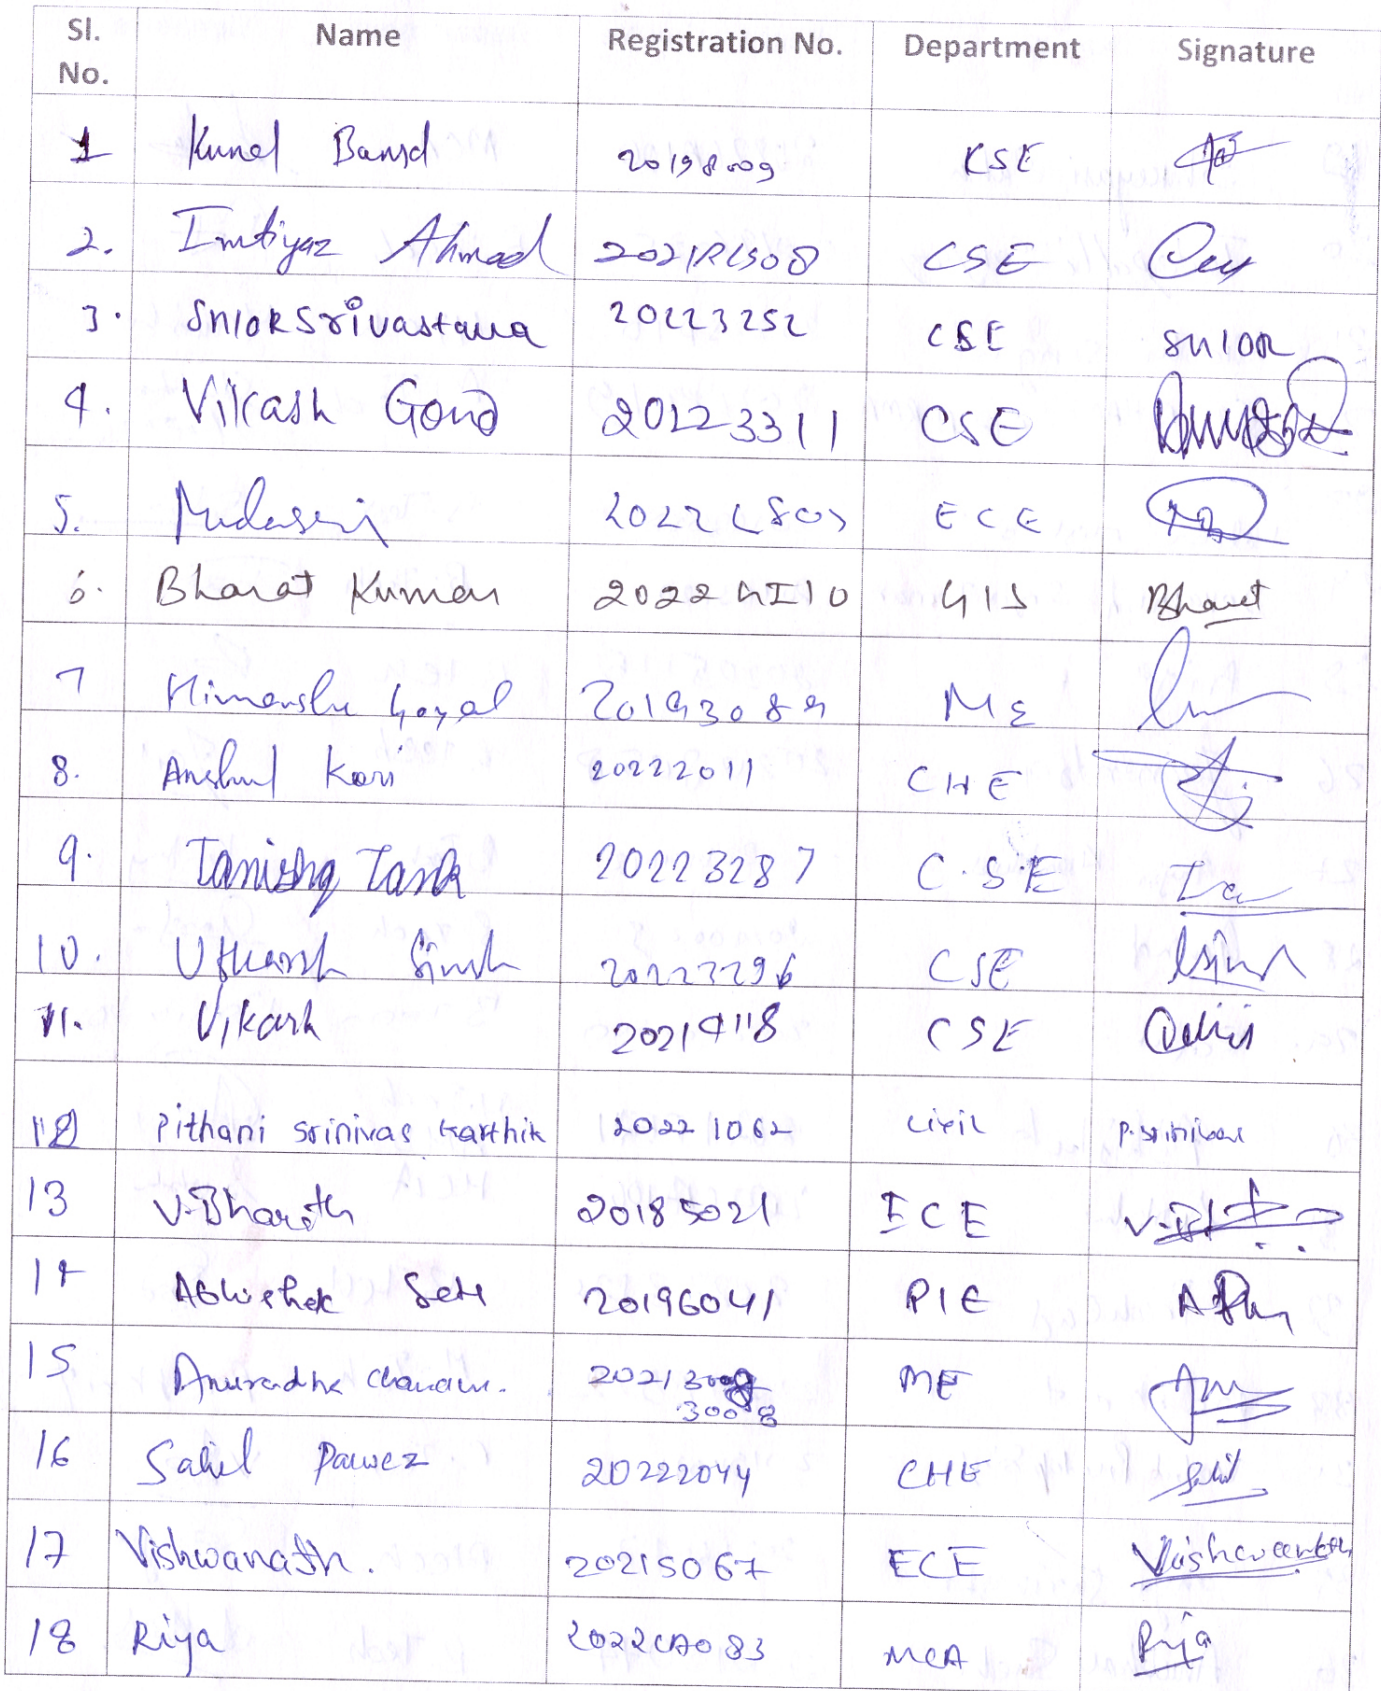 Sl. No. Name Registration No. Department Signature
1 Kunal Bansal 20198009 CSE
2. Imtiyaz Ahmad 2021RCS08 CSE
3. Shlok Srivastava 20223252 CSE Shlok
4. Vikash Gond 20223311 CSE
5. ECE
6. Bharat Kumar 2022GI10 GIS Bharat
7 Himanshu Goyal 20193089 ME
8. Anshul Kori 20222011 CHE
9. Tanishq Tank 20223287 C.SE
10. Utkarsh Singh 20223296 CSE
11. Vikash 20214118 CSE
12 Pithani Srinivas Karthik 20221062 Civil P.Srinivas
13 V.Bharath 20185021 ECE
14 Abhishek 20196041 PIE
15 Anuradha 2021 3008 ME
3008
16 Sahil Parwez 20222044 CHE Sahil
17 Vishwanath. 20215067 ECE Vishwanath
18 Riya 2022CA083 MCA Riya